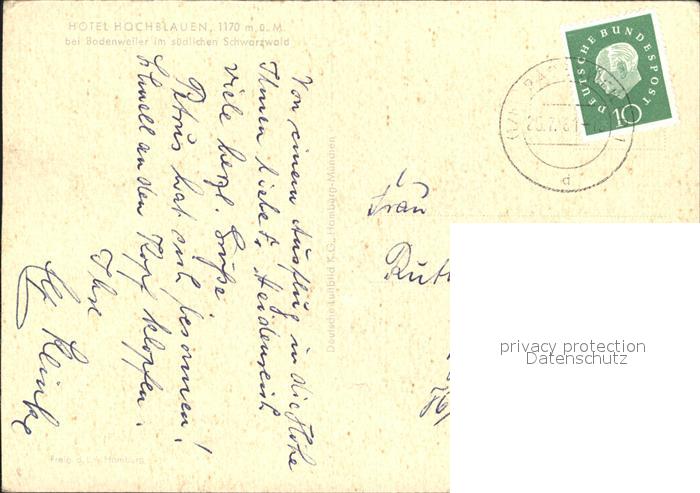 HOTEL HOCHBLAUEN, 1170 m. ü. M.
bei Badenweiler im südlichen Schwarzwald
Von einem Ausflug in die Höhe
Ihnen liebste
viele herzl. Grüße
Petrus hat sich besonnen!
Schnell an den Kopf klopfen.
Ihre
Deutsche Luftbild K.G., Hamburg-München
DEUTSCHE BUNDESPOST
10
d
Frau
privacy protection
Datenschutz